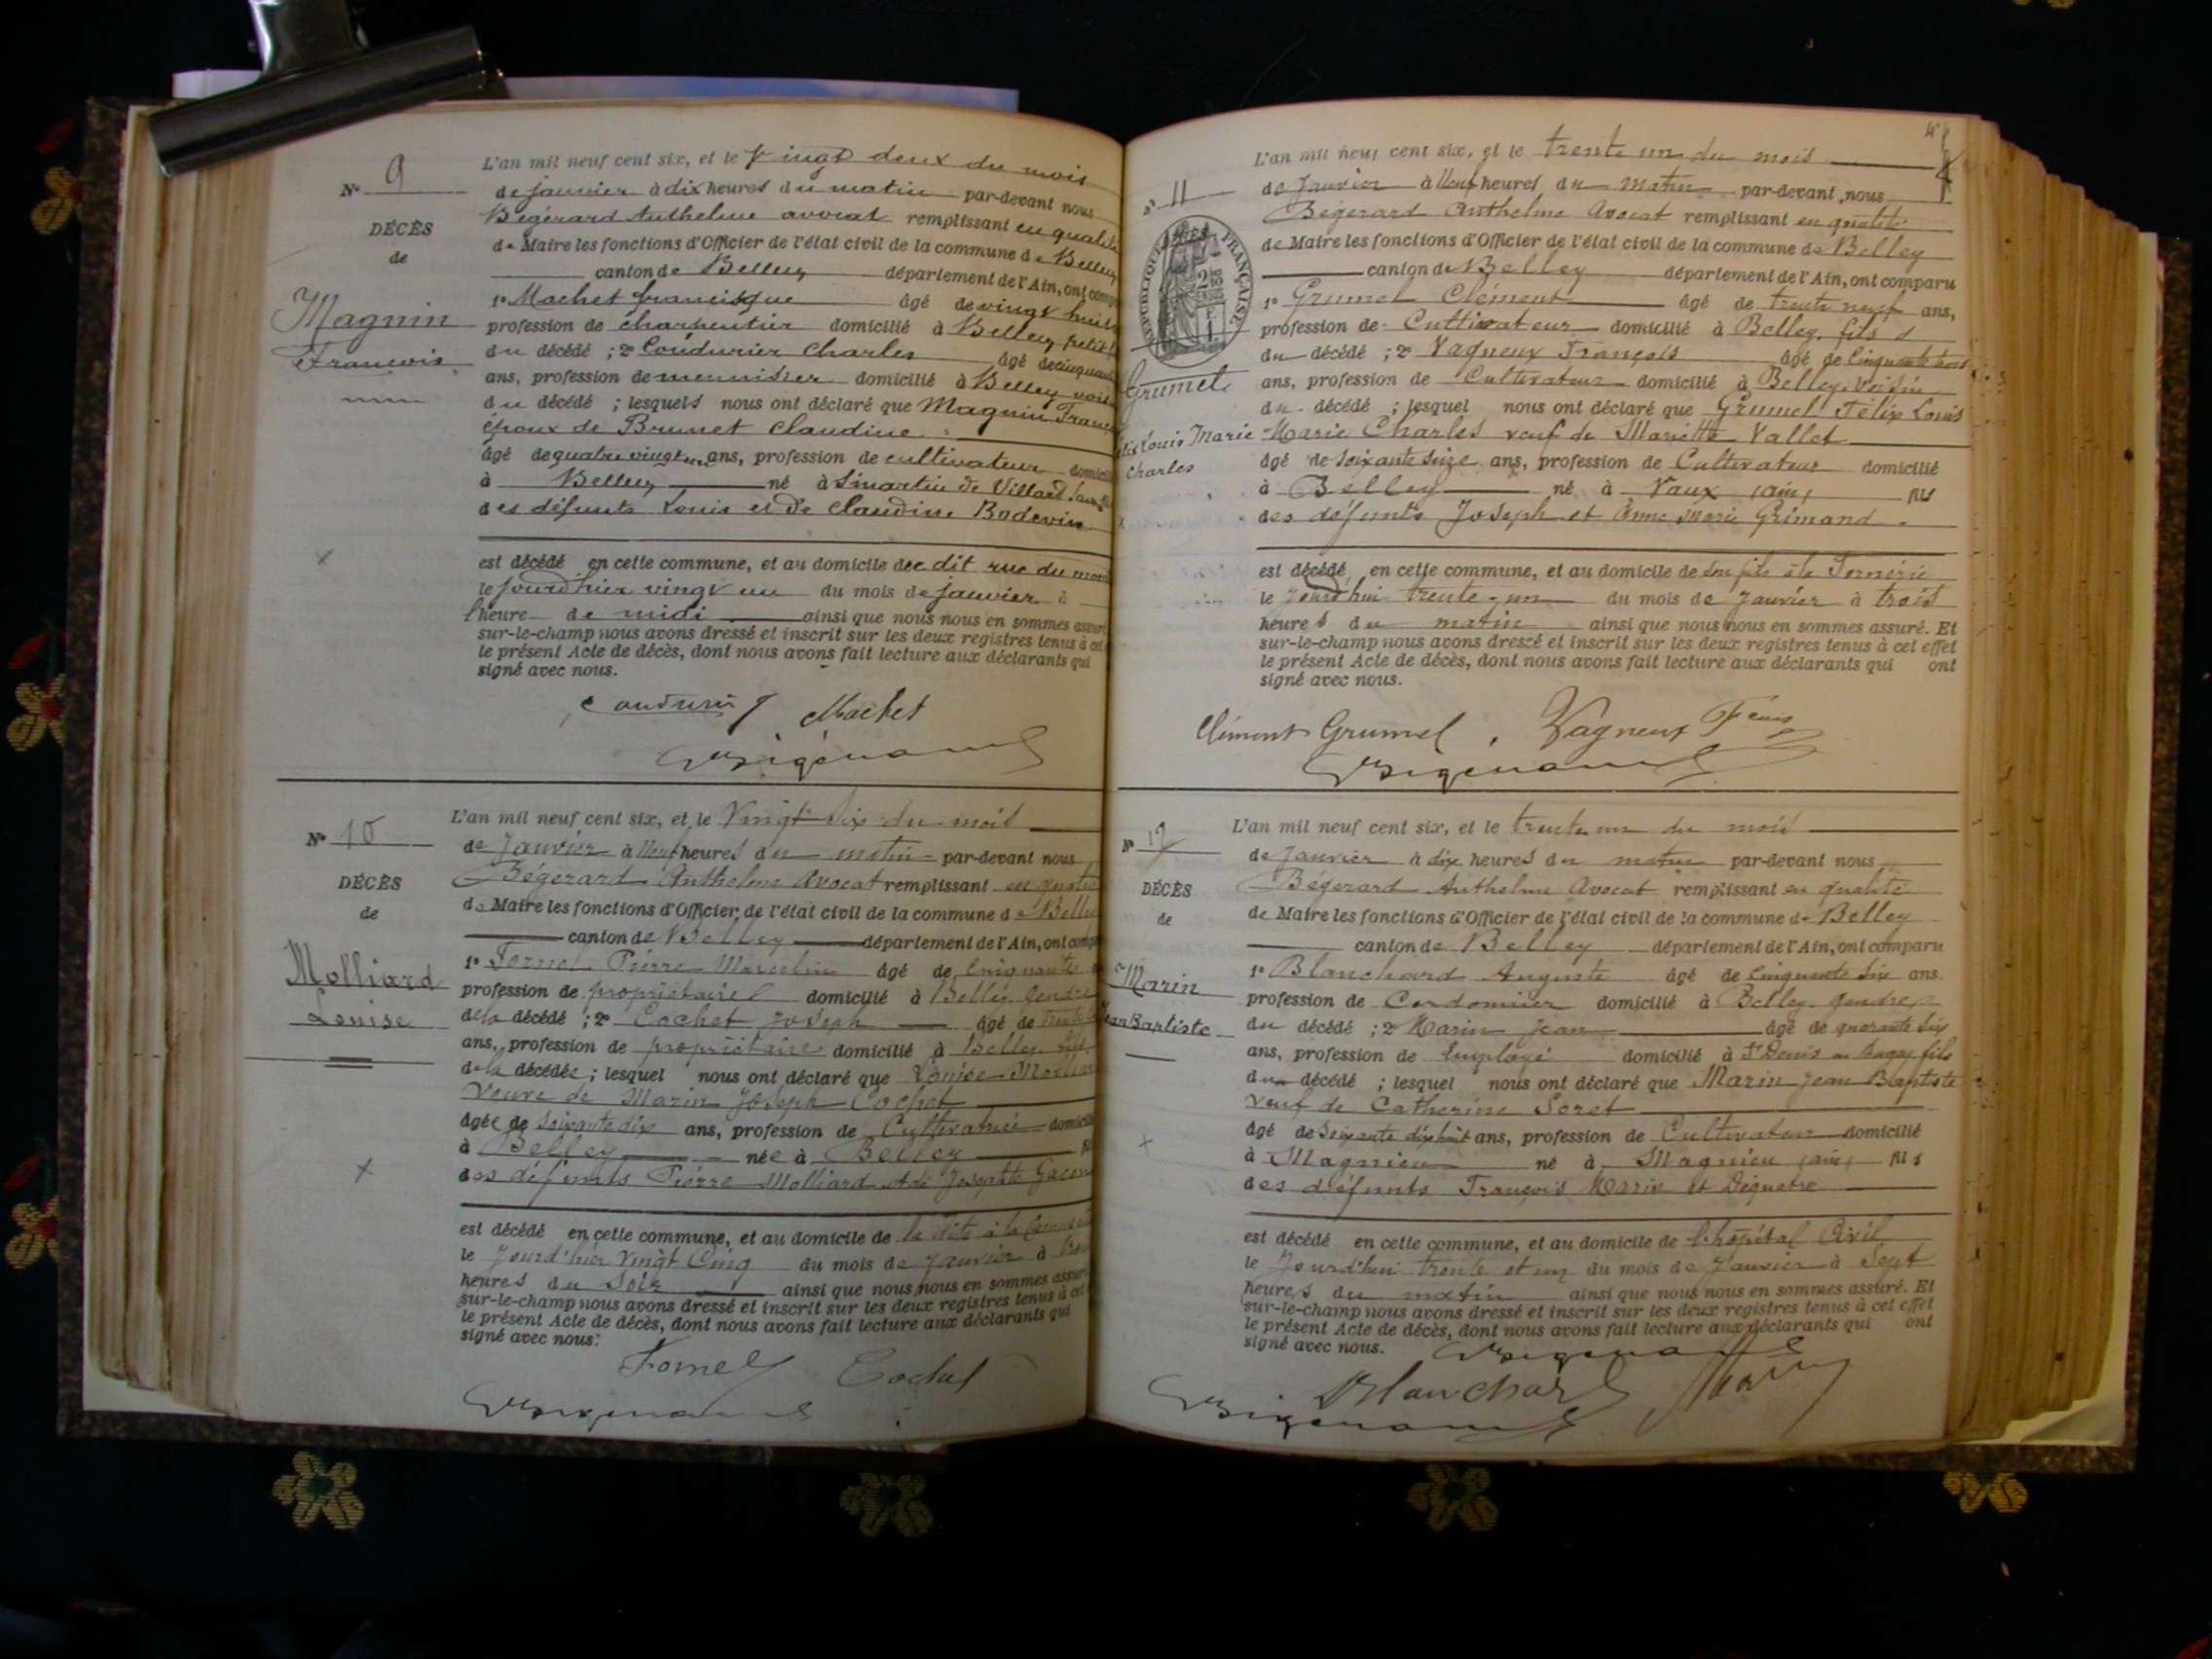 N° 9
DÉCÈS
de
Magnin
François
L'an mil neuf cent six, et le Vingt deux du mois
de janvier à dix heures du matin par-devant nous
Bégérard Anthelme avocat remplissant en qualité
de Maire les fonctions d'Officier de l'état civil de la commune de Belley
canton de Belley département de l'Ain, ont comp
1° Machet francisque âgé de vingt huit
profession de charpentier domicilié à Belley, petit f
du décédé ; 2° Coudurier Charles âgé de cinquan
ans, profession de menuisier domicilié à Belley vois
du décédé ; lesquels nous ont déclaré que Magnin Franç
époux de Brunet Claudine
âgé de quatre vingt un ans, profession de cultivateur domicil
à Belley né à St martin de Villard
des défunts Louis et de Claudine Bodevin
est décédé en cette commune, et au domicile du dit rue du
le jourd'hier vingt un du mois de janvier à
l'heure de midi ainsi que nous nous en sommes assuré
sur-le-champ nous avons dressé et inscrit sur les deux registres tenus à cet
le présent Acte de décès, dont nous avons fait lecture aux déclarants qui
signé avec nous.
Coudurier Machet
Bégérard
N° 10
DÉCÈS
de
Molliard
Louise
L'an mil neuf cent six, et le Vingt six du mois
de Janvier à Neuf heures du matin par-devant nous
Bégérard Anthelme Avocat remplissant en qualité
de Maire les fonctions d'Officier de l'état civil de la commune de Belley
canton de Belley département de l'Ain, ont comp
1° Fornel Pierre Marcelin âgé de Cinquante
profession de propriétaire domicilié à Belley Gendre
de la décédé ; 2° Cochet Joseph âgé de trente
ans, profession de propriétaire domicilié à Belley
de la décédée ; lesquel nous ont déclaré que Louise Molliar
Veuve de Marin Joseph Cochet
âgée de Soixante dix ans, profession de Cultivatrice domicil
à Belley née à Belley
des défunts Pierre Molliard et de Josephte
est décédé en cette commune, et au domicile de la dite à la
le Jourd'hier Vingt Cinq du mois de Janvier à
heures du Soir ainsi que nous nous en sommes assuré
sur-le-champ nous avons dressé et inscrit sur les deux registres tenus à cet
le présent Acte de décès, dont nous avons fait lecture aux déclarants qui
signé avec nous.
Fornel Cochet
Bégérard
N° 11
RÉPUBLIQUE FRANÇAISE
Grumel
Félix Louis Marie
Charles
L'an mil neuf cent six, et le trente un du mois
de Janvier à Neuf heures du matin par-devant nous
Bégérard Anthelme Avocat remplissant en qualité
de Maire les fonctions d'Officier de l'état civil de la commune de Belley
canton de Belley département de l'Ain, ont comparu
1° Grumel Clément âgé de trente neuf ans,
profession de Cultivateur domicilié à Belley, fils
du décédé ; 2° Vagneux François âgé de Cinquante trois
ans, profession de Cultivateur domicilié à Belley, Voisin
du décédé ; lesquel nous ont déclaré que Grumel Félix Louis
Marie Charles veuf de Mariette Vallet
âgé de soixante seize ans, profession de Cultivateur domicilié
à Belley né à Vaux (ain) fils
des défunts Joseph et Anne Marie Grimand
est décédé en cette commune, et au domicile de son fils à la Fornérie
le Jourd'hui trente-un du mois de Janvier à trois
heures du matin ainsi que nous nous en sommes assuré. Et
sur-le-champ nous avons dressé et inscrit sur les deux registres tenus à cet effet
le présent Acte de décès, dont nous avons fait lecture aux déclarants qui ont
signé avec nous.
Clément Grumel, Vagneux Fçois
Bégérard
N° 12
DÉCÈS
de
Marin
Jean Baptiste
L'an mil neuf cent six, et le trente un du mois
de Janvier à dix heures du matin par-devant nous
Bégerard Anthelme Avocat remplissant en qualité
de Maire les fonctions d'Officier de l'état civil de la commune de Belley
canton de Belley département de l'Ain, ont comparu
1° Blanchard Auguste âgé de Cinquante six ans.
profession de Cordonnier domicilié à Belley, gendre
du décédé ; 2° Marin Jean âgé de quarante six
ans, profession de Employé domicilié à St Denis en Bugey fils
du décédé ; lesquel nous ont déclaré que Marin Jean Baptiste
veuf de Catherine Soret
âgé de Soixante dix huit ans, profession de Cultivateur domicilié
à Magnieu né à Magnieu (ain) fils
des défunts François Marin et Déguette
est décédé en cette commune, et au domicile de l'hopital Civil
le Jourd'hui trente et un du mois de Janvier à Sept
heures du matin ainsi que nous nous en sommes assuré. Et
sur-le-champ nous avons dressé et inscrit sur les deux registres tenus à cet effet
le présent Acte de décès, dont nous avons fait lecture aux déclarants qui ont
signé avec nous. Bégérard
Blanchard Marin
Bégérard